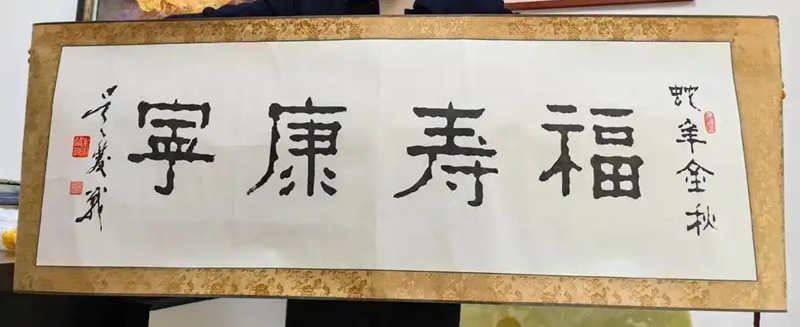 蛇年金秋
福寿康寧